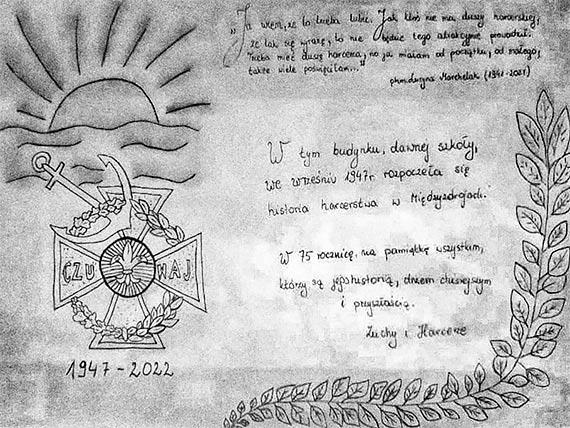 „Ja wiem, że to trzeba lubić. Jak ktoś nie ma duszy harcerskiej,
że tak się wyrażę, to nie będzie tego atrakcyjnie prowadził.
Trzeba mieć duszę harcerza, no ja miałam od początku, od małego,
także wiele poświęciłam..."
phm. Maryna Marchelak (1941-2021)
W tym budynku, dawnej szkoły,
we wrześniu 1947r. rozpoczęła się
historia harcerstwa w Międzyzdrojach.
W 75 rocznicę, na pamiątkę wszystkim,
którzy są jej historią, dniem dzisiejszym
i przyszłością.
Zuchy i Harcerze
CZU WAJ
1947 - 2022